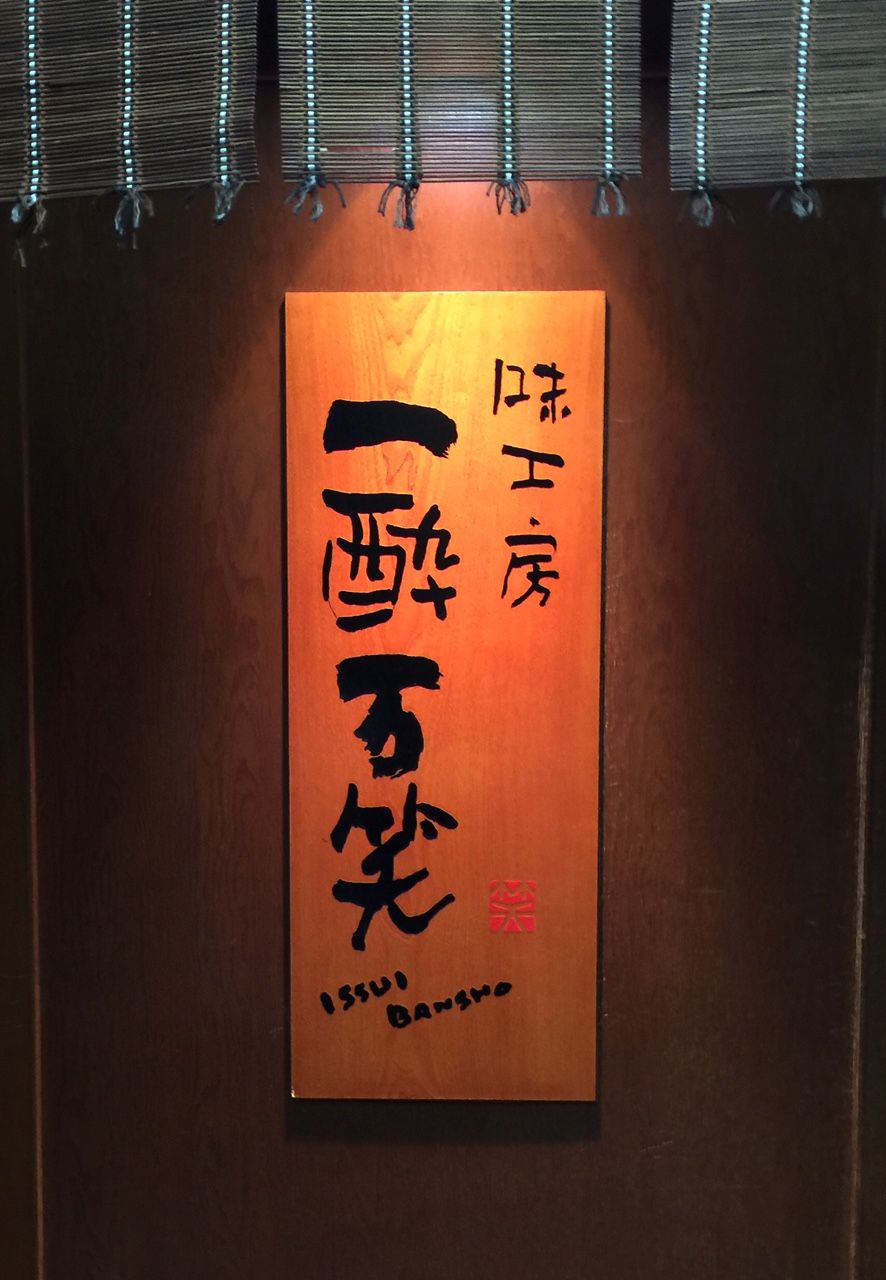 味工房
一酔万笑
ISSUI
BANSHO
笑